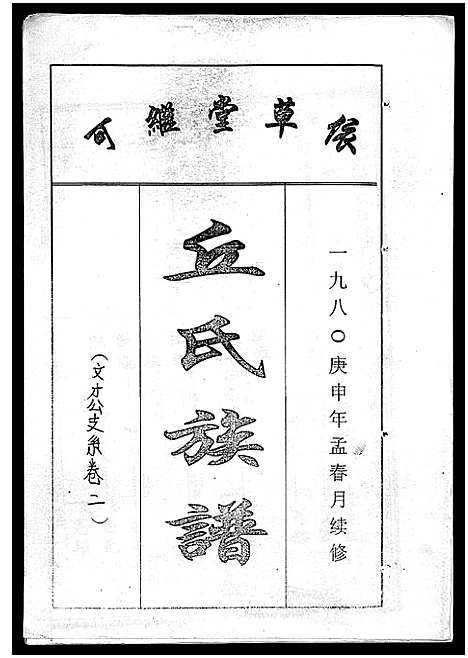 矦草堂繼可
一九八〇庚申年孟春月续修
丘氏族譜
（文才公支系卷二）